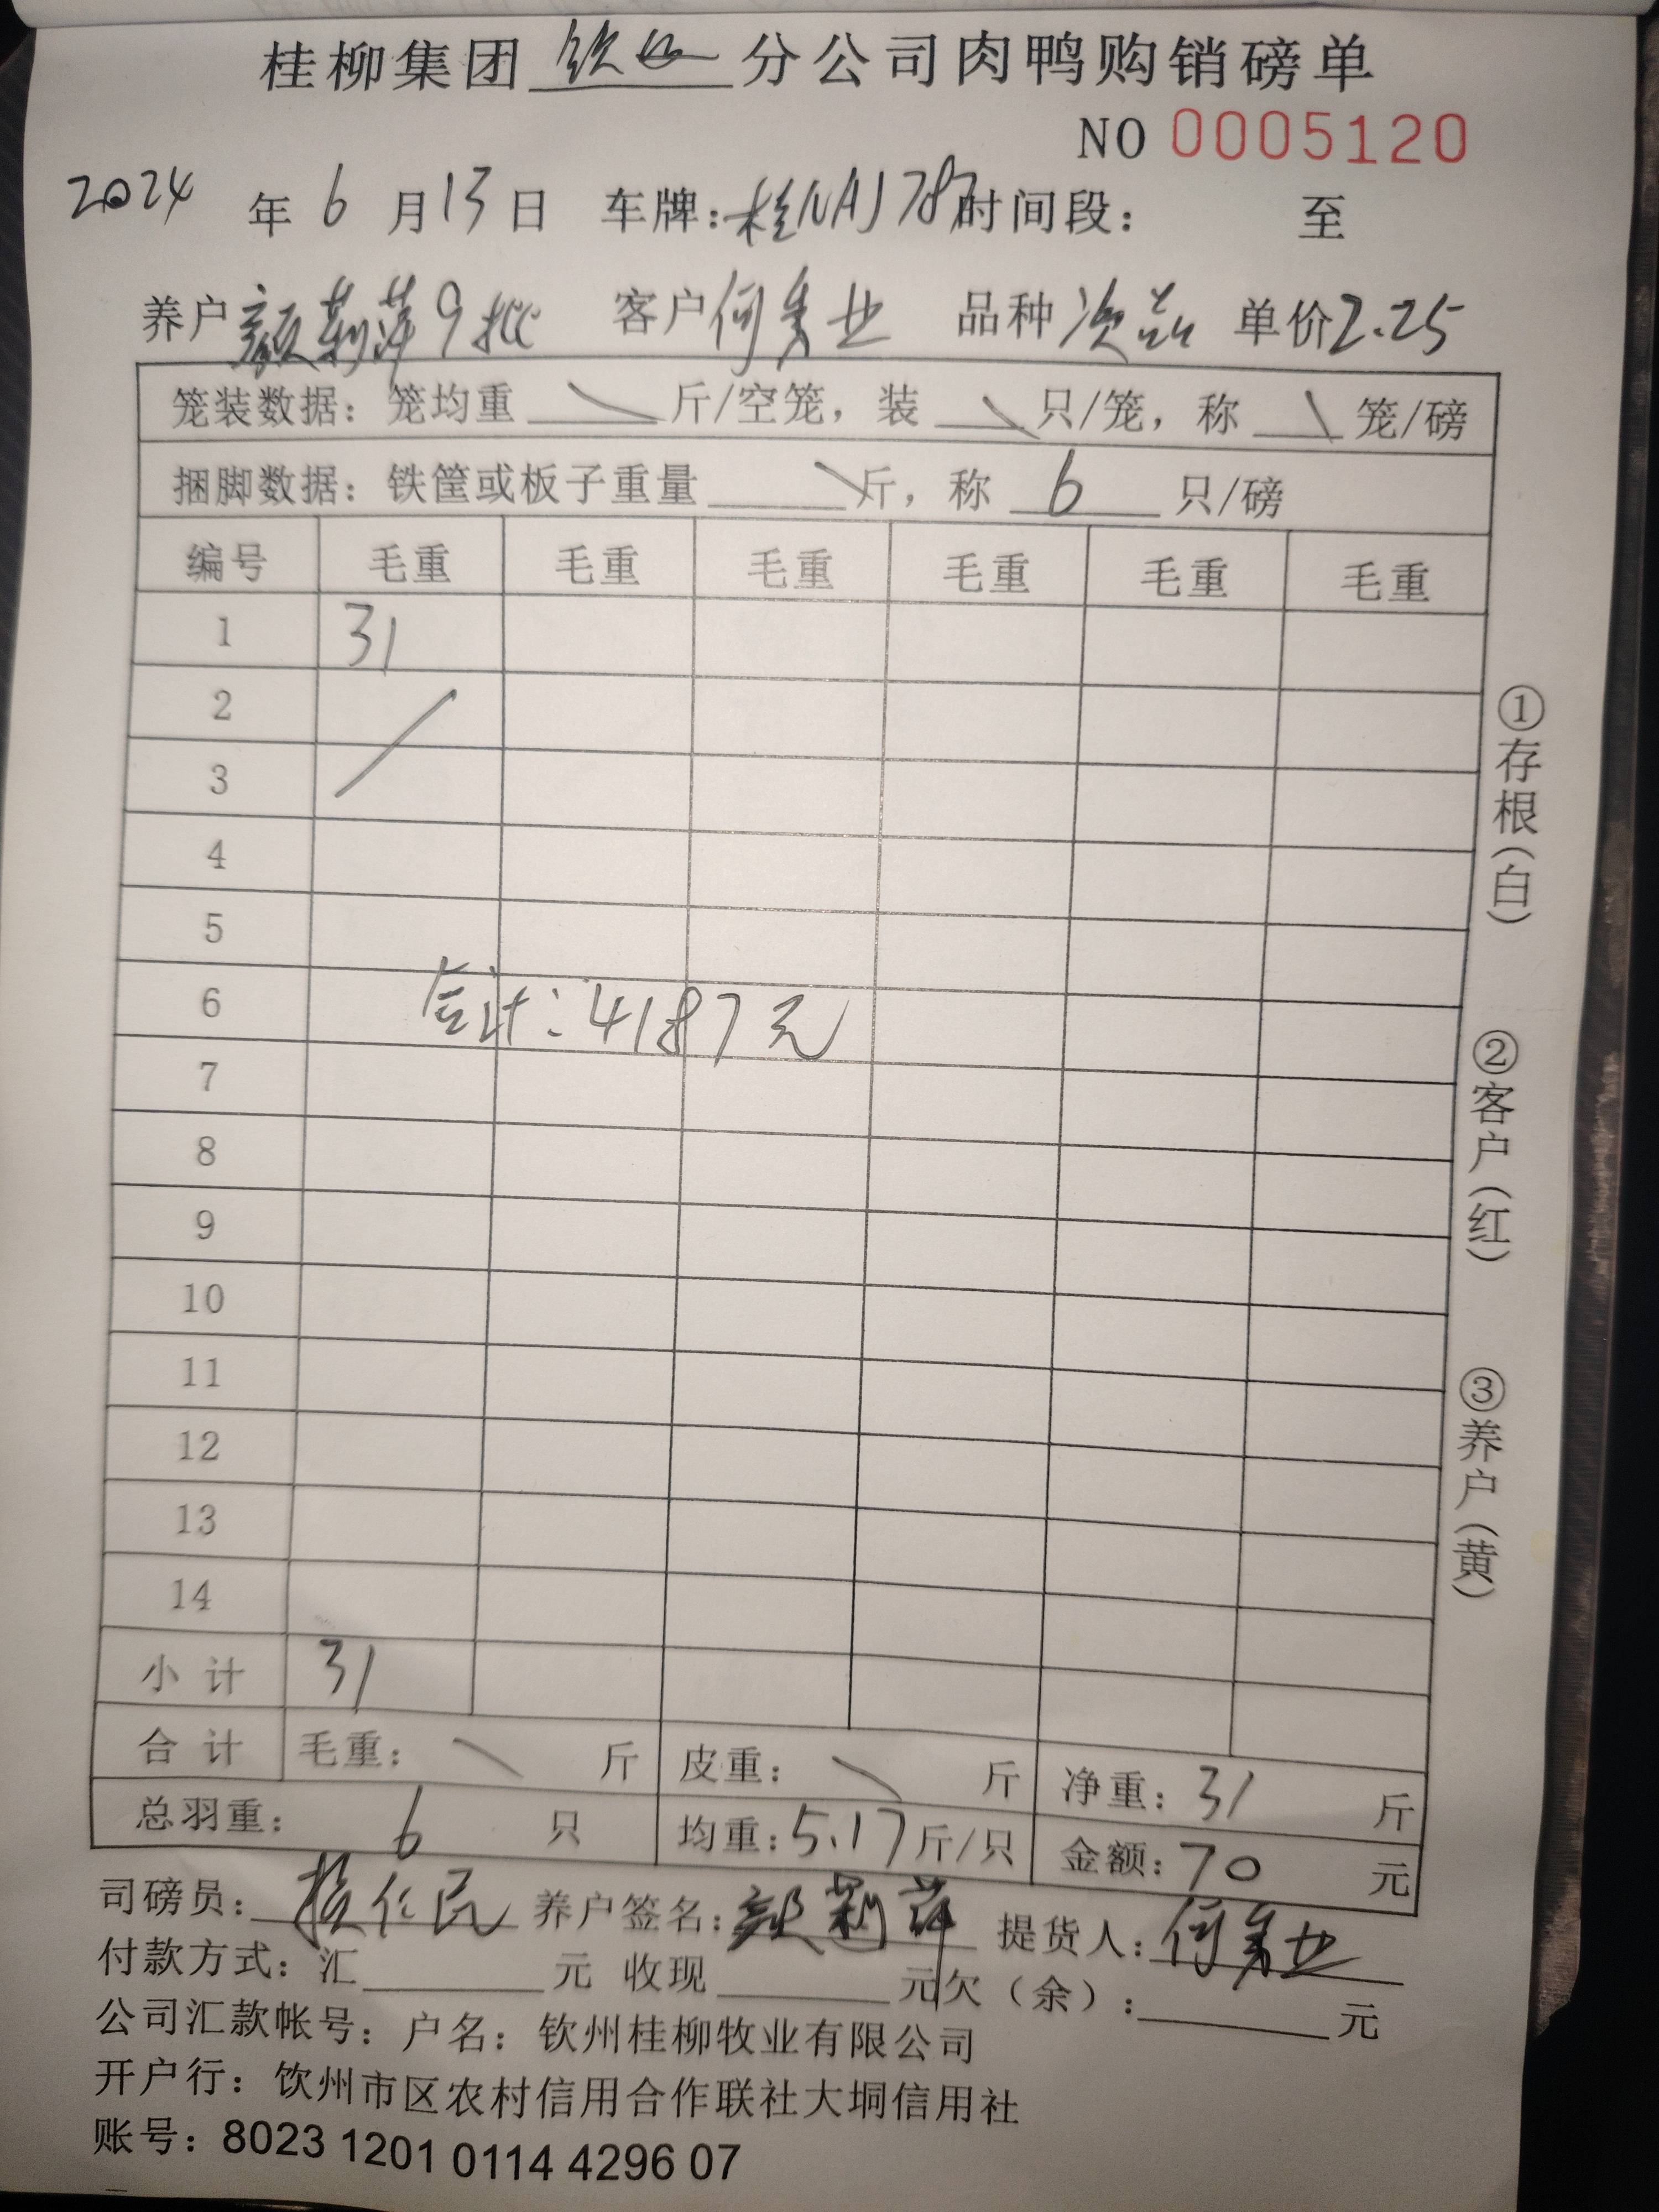 桂柳集团 钦州 分公司肉鸭购销磅单
NO 0005120
2024 年 6 月 13 日 车牌:桂NAJ787 时间段: 至
养户 颜莉萍9批 客户 何業 品种 次品 单价 2.25
笼装数据: 笼均重 \ 斤/空笼, 装 \ 只/笼, 称 \ 笼/磅
捆脚数据: 铁筐或板子重量 \ 斤, 称 6 只/磅
编号 毛重 毛重 毛重 毛重 毛重 毛重
1 31
2
3
4
5
6
合计:4187元
7
8
9
10
11
12
13
14
小计 31
合计 毛重: \ 斤 皮重: \ 斤 净重: 31 斤
总羽重: 6 只 均重: 5.17 斤/只 金额: 70 元
司磅员: 仁民 养户签名: 颜莉萍 提货人: 何
付款方式: 汇 元 收现 元 欠(余): 元
公司汇款帐号: 户名: 钦州桂柳牧业有限公司
开户行: 饮州市区农村信用合作联社大垌信用社
账号: 8023 1201 0114 4296 07
①存根(白)
②客户(红)
③养户(黄)